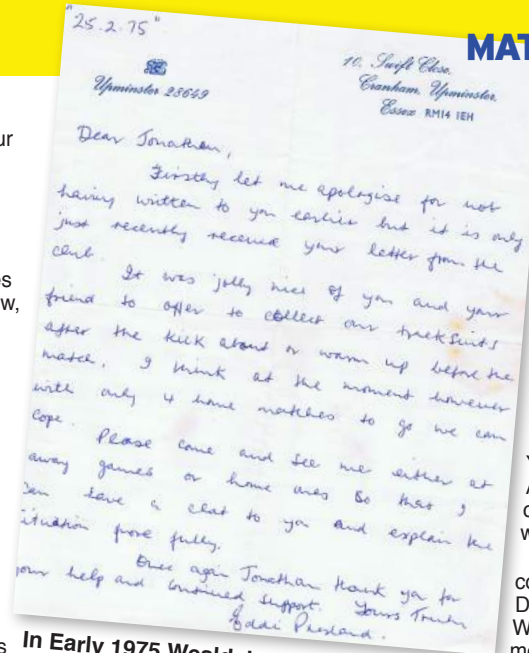 "25.2.75"
MAT
Upminster 28649
10, Swift Close,
Cranham, Upminster,
Essex RM14 1EH
Dear Jonathan,
Firstly let me apologise for not
having written to you earlier but it is only
just recently received your letter from the
club.
It was jolly nice of you and your
friend to offer to collect our tracksuits
after the kick about or warm up before the
match. I think at the moment however
with only 4 home matches to go we can
cope.
Please come and see me either at
away games or home ones so that I
can have a chat to you and explain the
situation more fully.
Once again Jonathan thank you for
your help and continued support. Yours Truly
Eddie Presland.
In Early 1975
ur
es
w,
s